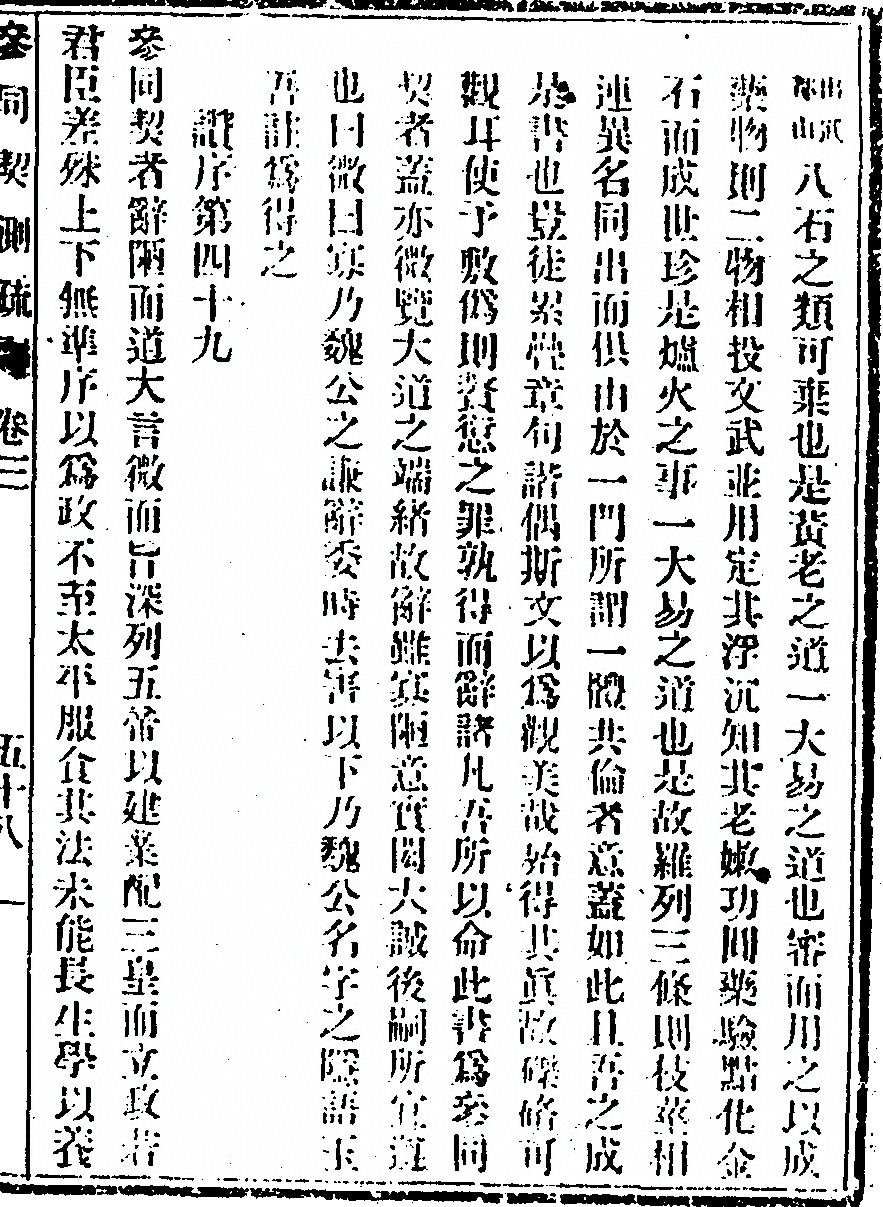 出武都山八石之類可棄也是黃老之道一大易之道也審而用之以成
藥物則二物相投文武並用定其浮沉知其老嫩功圓藥驗點化金
石而成世珍是爐火之事一大易之道也是故羅列三條則枝莖相
連異名同出而俱由於一門所謂一體共倫者意蓋如此且吾之成
是書也豈徒累疊章句諧偶斯文以爲觀美哉殆得其眞故礫硌可
觀耳使予敷僞則贅愆之罪孰得而辭諸凡吾所以命此書爲參同
契者蓋亦微覽大道之端緒故辭雖寡陋意實闊大誠後嗣所宜遵
也曰微曰寡乃魏公之謙辭委時去害以下乃魏公名字之隱語玉
吾註爲得之
讚序第四十九
參同契者辭陋而道大言微而旨深列五帝以建業配三皇而立政若
君臣差殊上下無準序以爲政不至太平服食其法未能長生學以養
參同契測疏
卷三
五十八